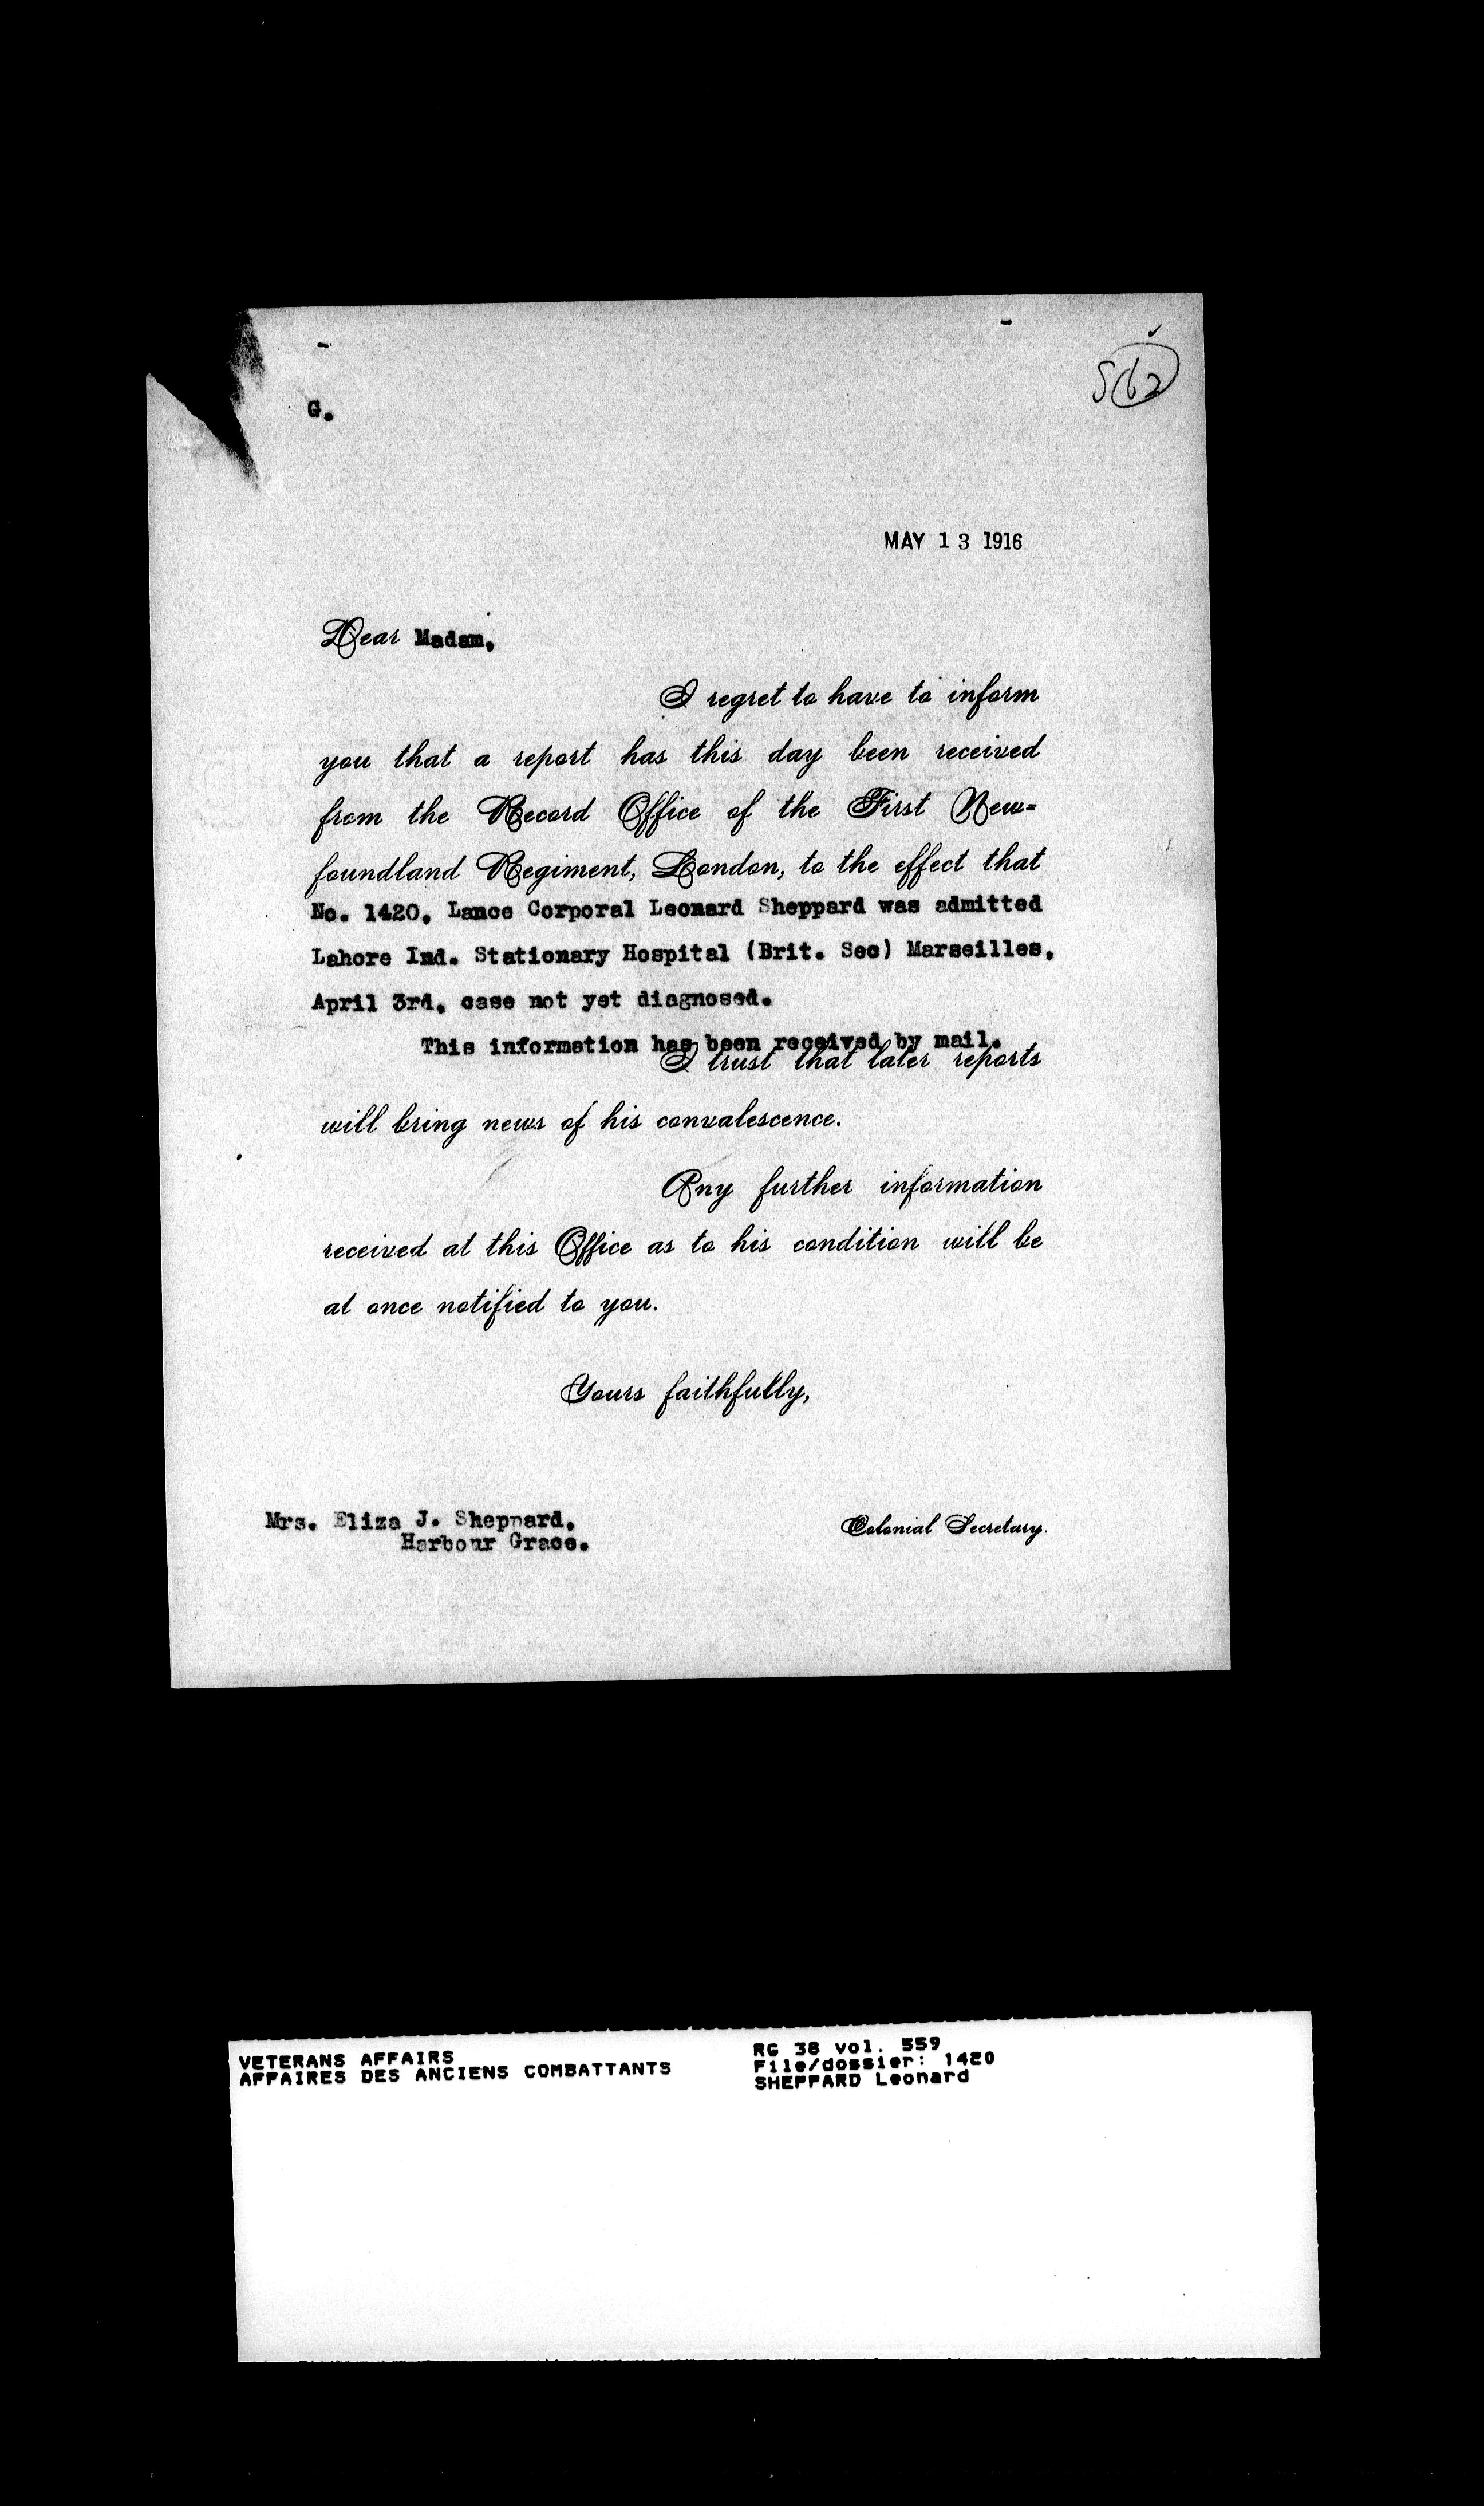 G.
MAY 13 1916
Dear Madam,
I regret to have to inform
you that a report has this day been received
from the Record Office of the First New=
foundland Regiment, London, to the effect that
No. 1420, Lance Corporal Leonard Sheppard was admitted
Lahore Ind. Stationary Hospital (Brit. Sec) Marseilles,
April 3rd, case not yet diagnosed.
This information has been received by mail.
I trust that later reports
will bring news of his convalescence.
Any further information
received at this Office as to his condition will be
at once notified to you.
Yours faithfully,
Mrs. Eliza J. Sheppard,
Harbour Grace.
Colonial Secretary.
VETERANS AFFAIRS
AFFAIRES DES ANCIENS COMBATTANTS
RG 38 vol. 559
File/dossier: 1420
SHEPPARD Leonard